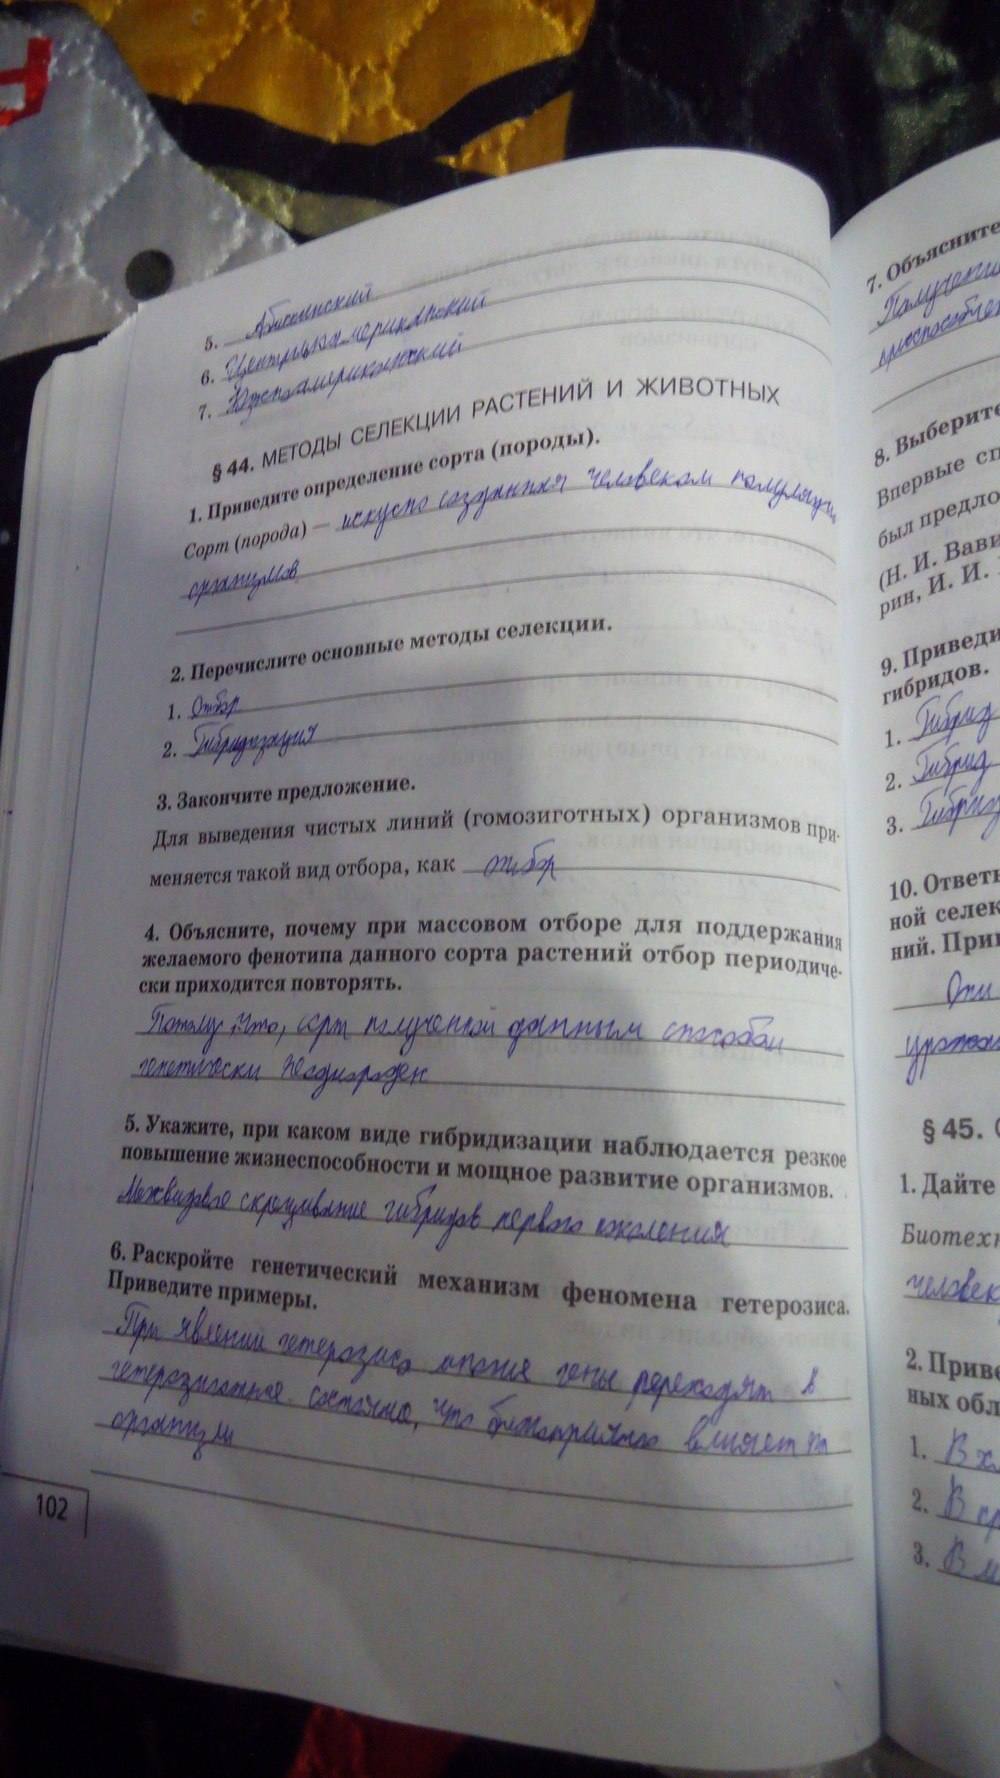 5. Абиссинский
6. Центральноамериканский
7. Южноамериканский
§ 44. МЕТОДЫ СЕЛЕКЦИИ РАСТЕНИЙ И ЖИВОТНЫХ
1. Приведите определение сорта (породы).
Сорт (порода) — созданная человеком популяция
организмов
2. Перечислите основные методы селекции.
1. Отбор
2. Гибридизация
3. Закончите предложение.
Для выведения чистых линий (гомозиготных) организмов при-
меняется такой вид отбора, как отбор
4. Объясните, почему при массовом отборе для поддержания
желаемого фенотипа данного сорта растений отбор периодиче-
ски приходится повторять.
что, сорт полученой данным способом
генетически неоднороден
5. Укажите, при каком виде гибридизации наблюдается резкое
повышение жизнеспособности и мощное развитие организмов.
Межвидовое скрещивание гибридов первого поколения
6. Раскройте генетический механизм феномена гетерозиса.
Приведите примеры.
При явлении гетерозиса гены переходят в
что влияет
102
7. Объясните
Получени
приспособлен
8. Выберите
Впервые сп
был предло
(Н. И. Вави
рин, И. И.
9. Приведи
гибридов.
1. Гибрид
2. Гибрид
3. Гибрид
10. Ответь
ной селек
ний. При
Они
урожа
§ 45.
1. Дайте
Биотехн
человек
2. Приве
ных обл
1. В х
2. В
3. В